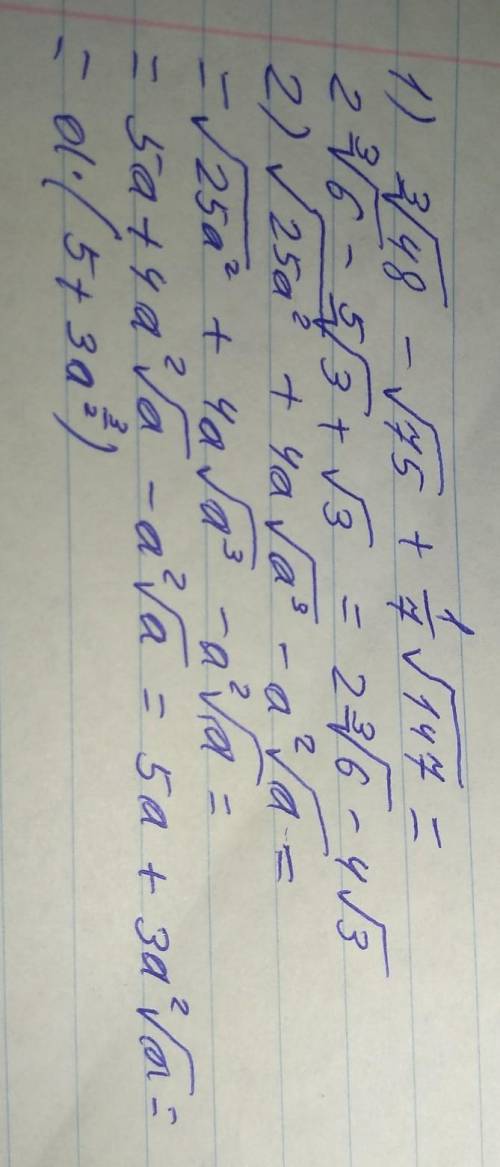 1) ∛48 − √75 + 1/7 √147 =
2∛6 − 5√3 + √3 = 2∛6 − 4√3
2) √25a² + 4a√a³ − a²√a =
= √25a² + 4a√a³ − a²√a =
= 5a + 4a²√a − a²√a = 5a + 3a²√a =
= a·(5 + 3a^(3/2))